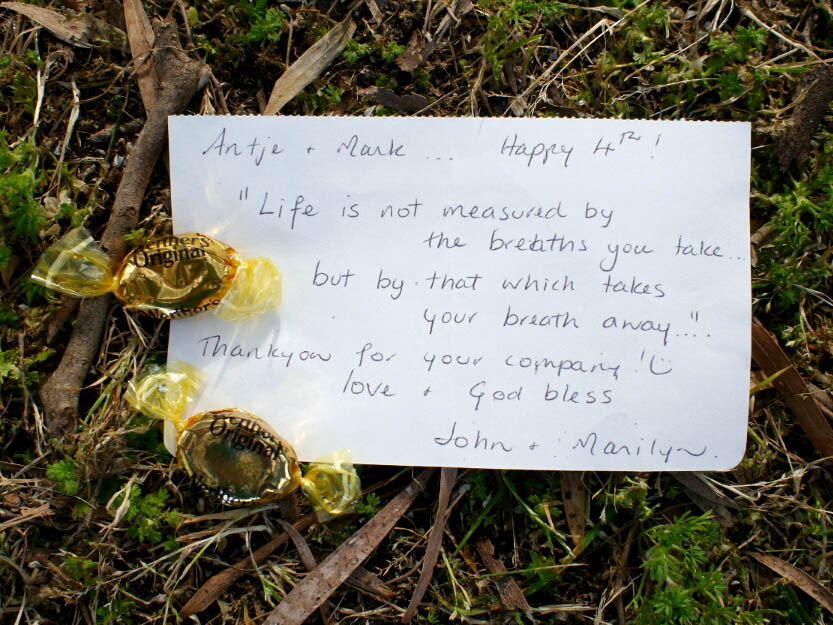 Antje + Mark ... Happy 4TH!
"Life is not measured by
the breaths you take...
but by that which takes
your breath away...".
Thankyou for your company!
love + God bless
John + Marilyn.
Werther's
Original
Werther's
Original